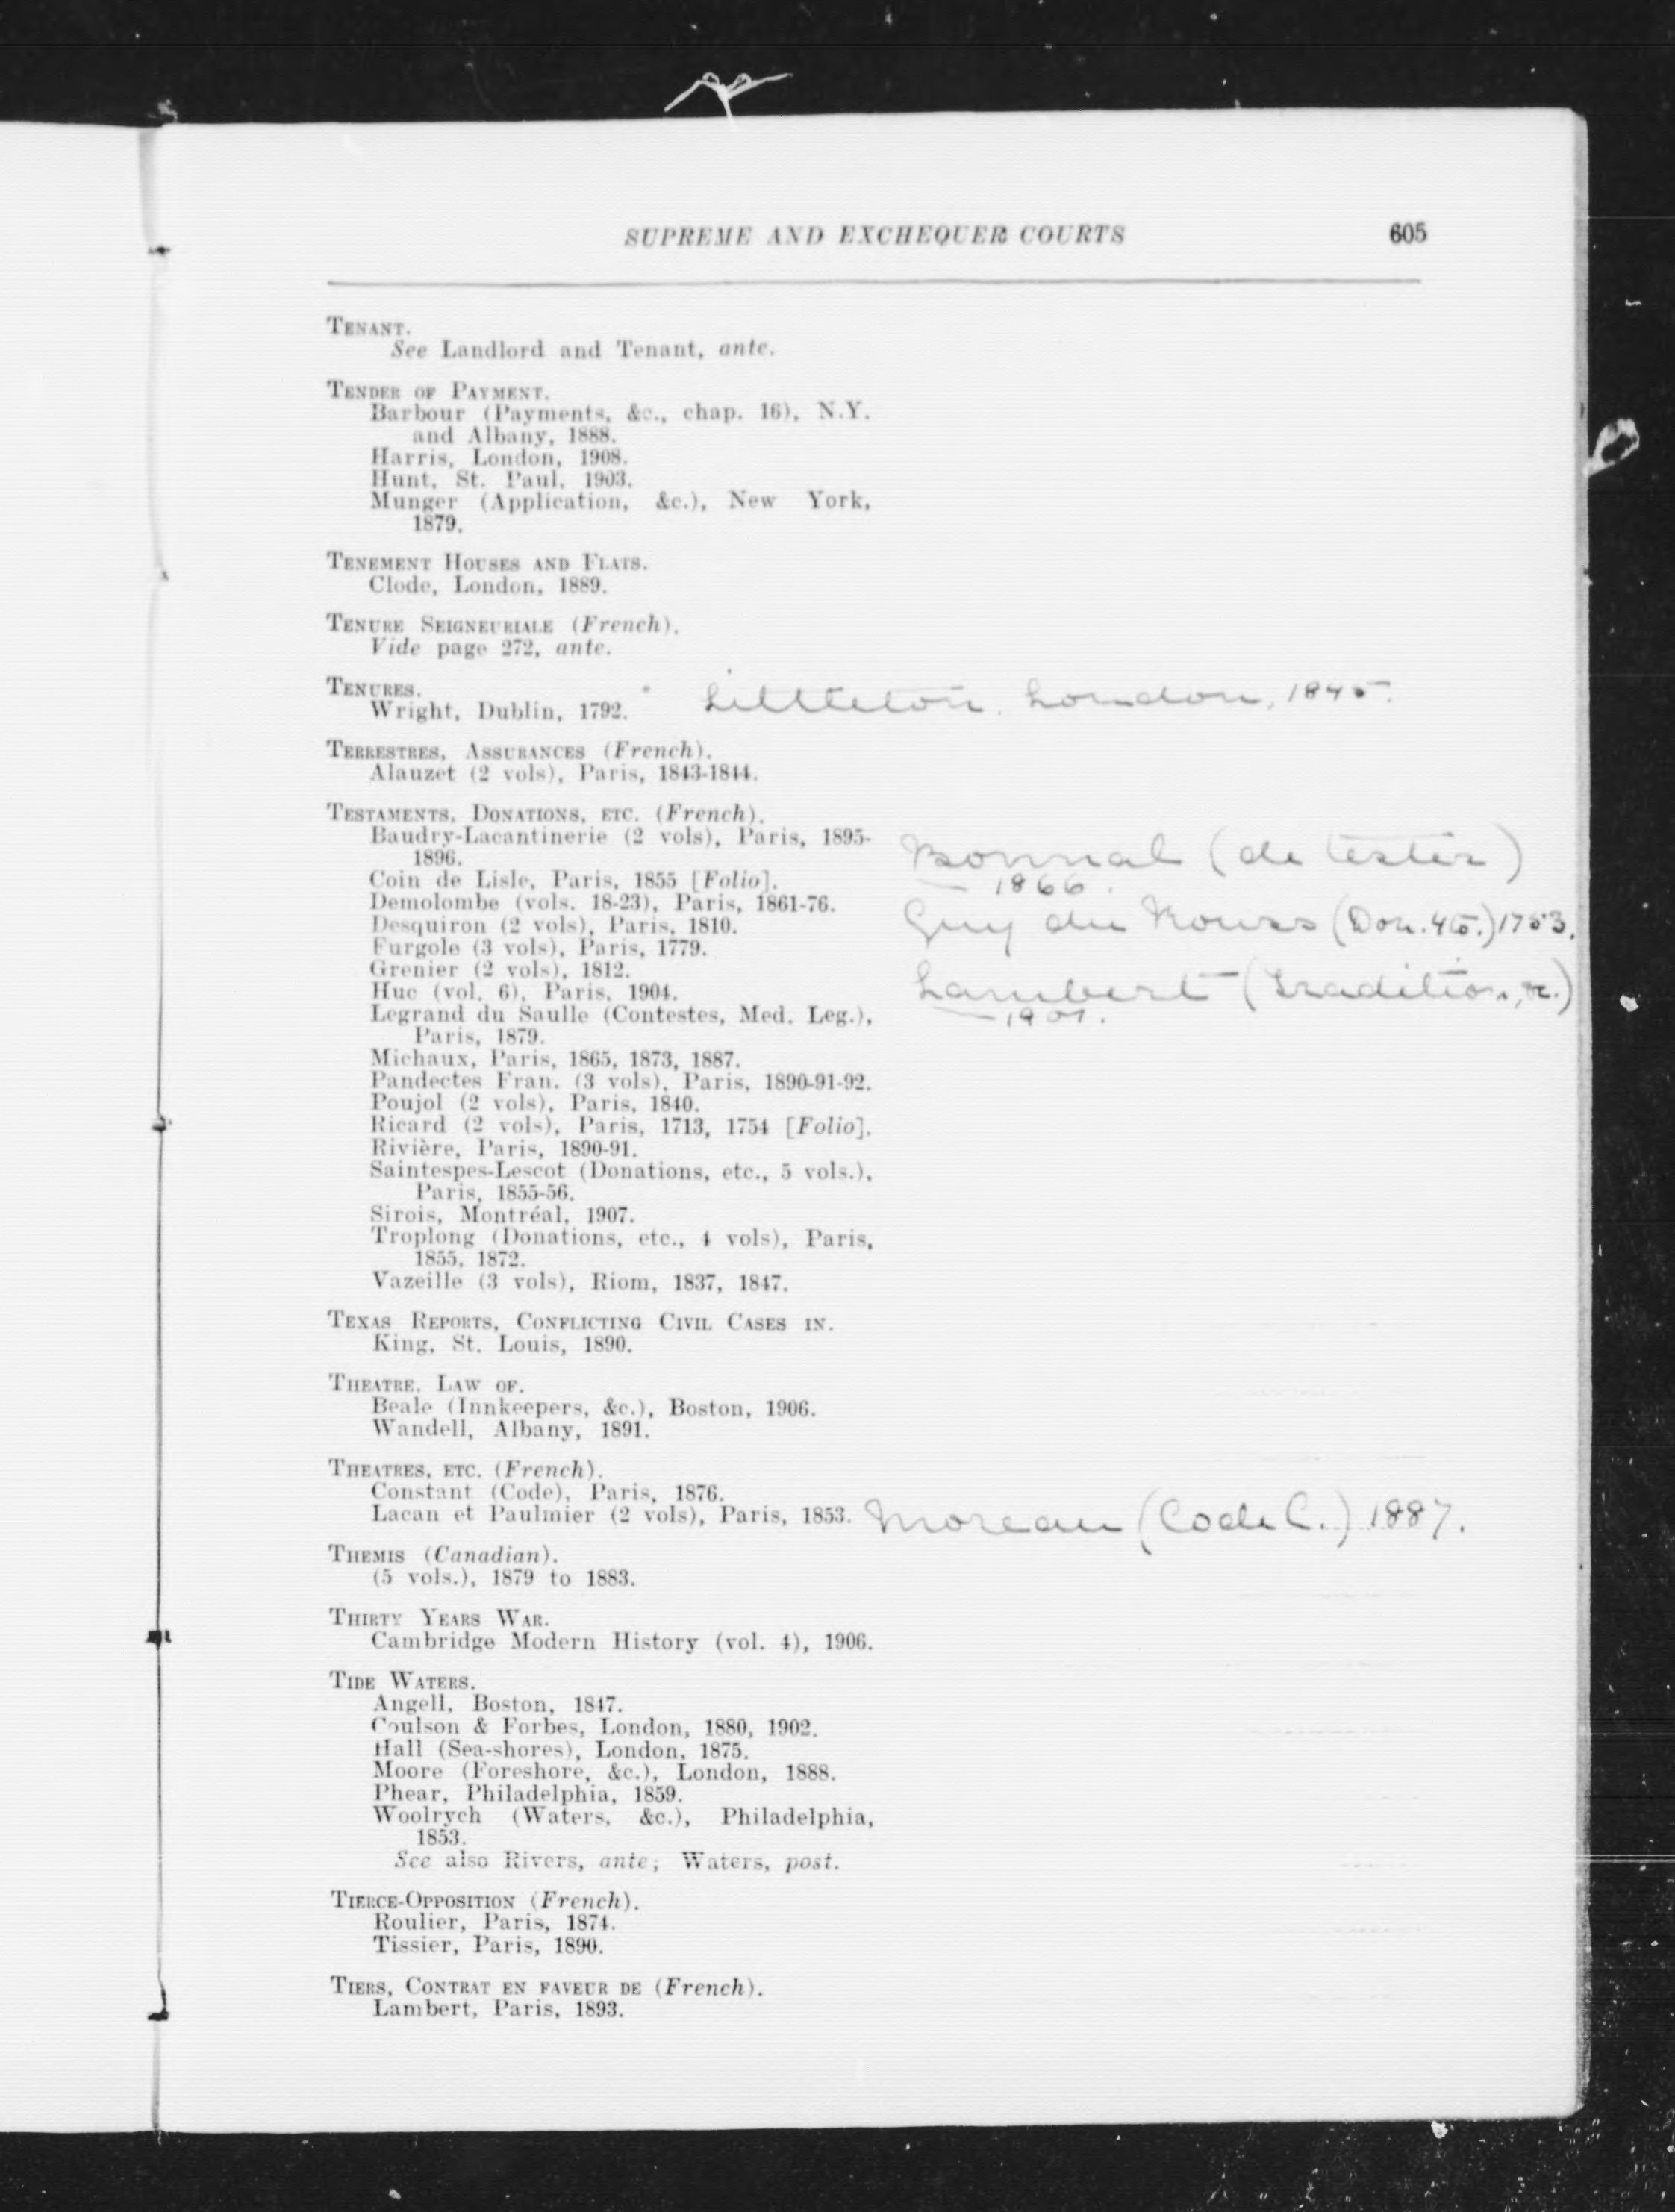 SUPREME AND EXCHEQUER COURTS 605
TENANT.
See Landlord and Tenant, ante.
TENDER OF PAYMENT.
Barbour (Payments, &c., chap. 16), N.Y.
and Albany, 1888.
Harris, London, 1908.
Hunt, St. Paul, 1903.
Munger (Application, &c.), New York,
1879.
TENEMENT HOUSES AND FLATS.
Clode, London, 1889.
TENURE SEIGNEURIALE (French).
Vide page 272, ante.
TENURES.
Wright, Dublin, 1792. Littleton. London, 1845.
TERRESTRES, ASSURANCES (French).
Alauzet (2 vols), Paris, 1843-1844.
TESTAMENTS, DONATIONS, ETC. (French).
Baudry-Lacantinerie (2 vols), Paris, 1895-
1896.
Bonnal (de tester)
1866.
Coin de Lisle, Paris, 1855 [Folio].
Demolombe (vols. 18-23), Paris, 1861-76.
Desquiron (2 vols), Paris, 1810.
Guy du (Don. ) 1753.
Furgole (3 vols), Paris, 1779.
Grenier (2 vols), 1812.
Huc (vol. 6), Paris, 1904.
Lambert (Tradition, &c.)
Legrand du Saulle (Contestes, Med. Leg.),
Paris, 1879.
Michaux, Paris, 1865, 1873, 1887.
Pandectes Fran. (3 vols), Paris, 1890-91-92.
Poujol (2 vols), Paris, 1840.
Ricard (2 vols), Paris, 1713, 1754 [Folio].
Rivière, Paris, 1890-91.
Saintespes-Lescot (Donations, etc., 5 vols.),
Paris, 1855-56.
Sirois, Montréal, 1907.
Troplong (Donations, etc., 4 vols), Paris,
1855, 1872.
Vazeille (3 vols), Riom, 1837, 1847.
TEXAS REPORTS, CONFLICTING CIVIL CASES IN.
King, St. Louis, 1890.
THEATRE, LAW OF.
Beale (Innkeepers, &c.), Boston, 1906.
Wandell, Albany, 1891.
THEATRES, ETC. (French).
Constant (Code), Paris, 1876.
Lacan et Paulmier (2 vols), Paris, 1853. Moreau (Code C.) 1887.
THEMIS (Canadian).
(5 vols.), 1879 to 1883.
THIRTY YEARS WAR.
Cambridge Modern History (vol. 4), 1906.
TIDE WATERS.
Angell, Boston, 1847.
Coulson & Forbes, London, 1880, 1902.
Hall (Sea-shores), London, 1875.
Moore (Foreshore, &c.), London, 1888.
Phear, Philadelphia, 1859.
Woolrych (Waters, &c.), Philadelphia,
1853.
See also Rivers, ante; Waters, post.
TIERCE-OPPOSITION (French).
Roulier, Paris, 1874.
Tissier, Paris, 1890.
TIERS, CONTRAT EN FAVEUR DE (French).
Lambert, Paris, 1893.